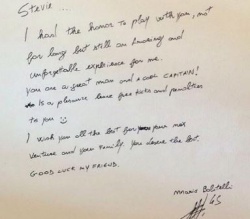 Stevie ...
I had the honor to play with you, not
for long but still an honoring and
unforgettable experience for me.
you are a great man and a cool CAPTAIN!
is a pleasure leave free kicks and penalties
to you ☺
I wish you all the best for your next
venture and your family. you deserve the best.
GOOD LUCK MY FRIEND.
Mario Balotelli
45